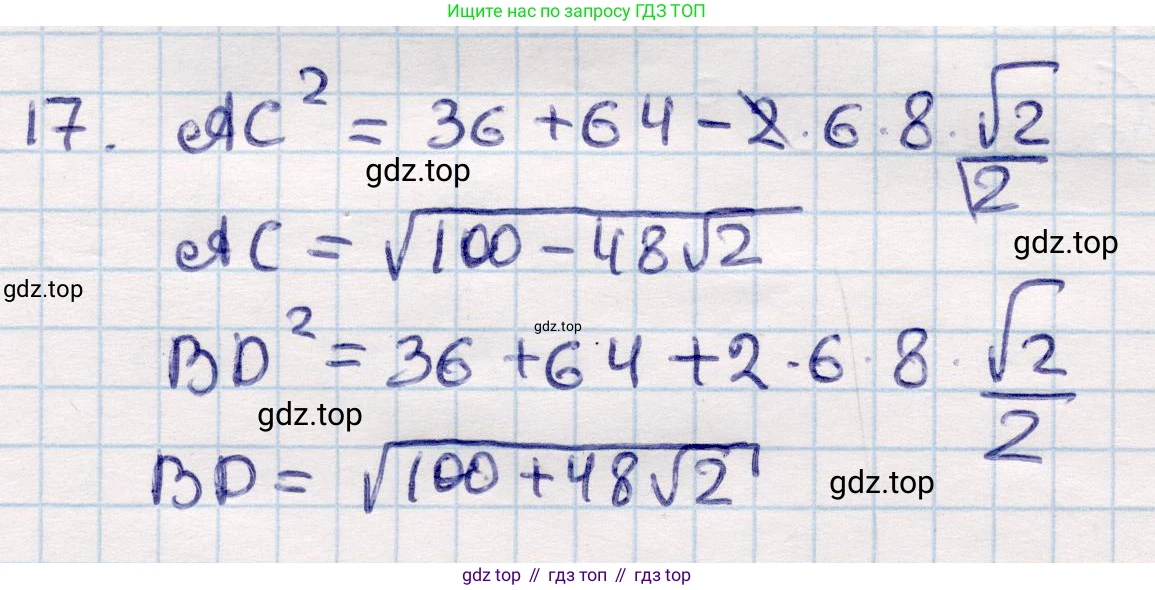 Ищите нас по запросу ГДЗ ТОП
17. AC² = 36 + 64 - 2 · 6 · 8 · √2/2
gdz.top
AC = √(100 - 48√2)
gdz.top
gdz.top
BD² = 36 + 64 + 2 · 6 · 8 · √2/2
gdz.top
gdz.top
BD = √(100 + 48√2)
gdz.top
gdz top // гдз топ // гдз top